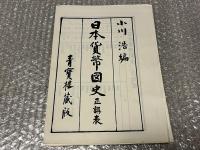 小川浩編
日本貨幣図史正誤表
青寳樓蔵版